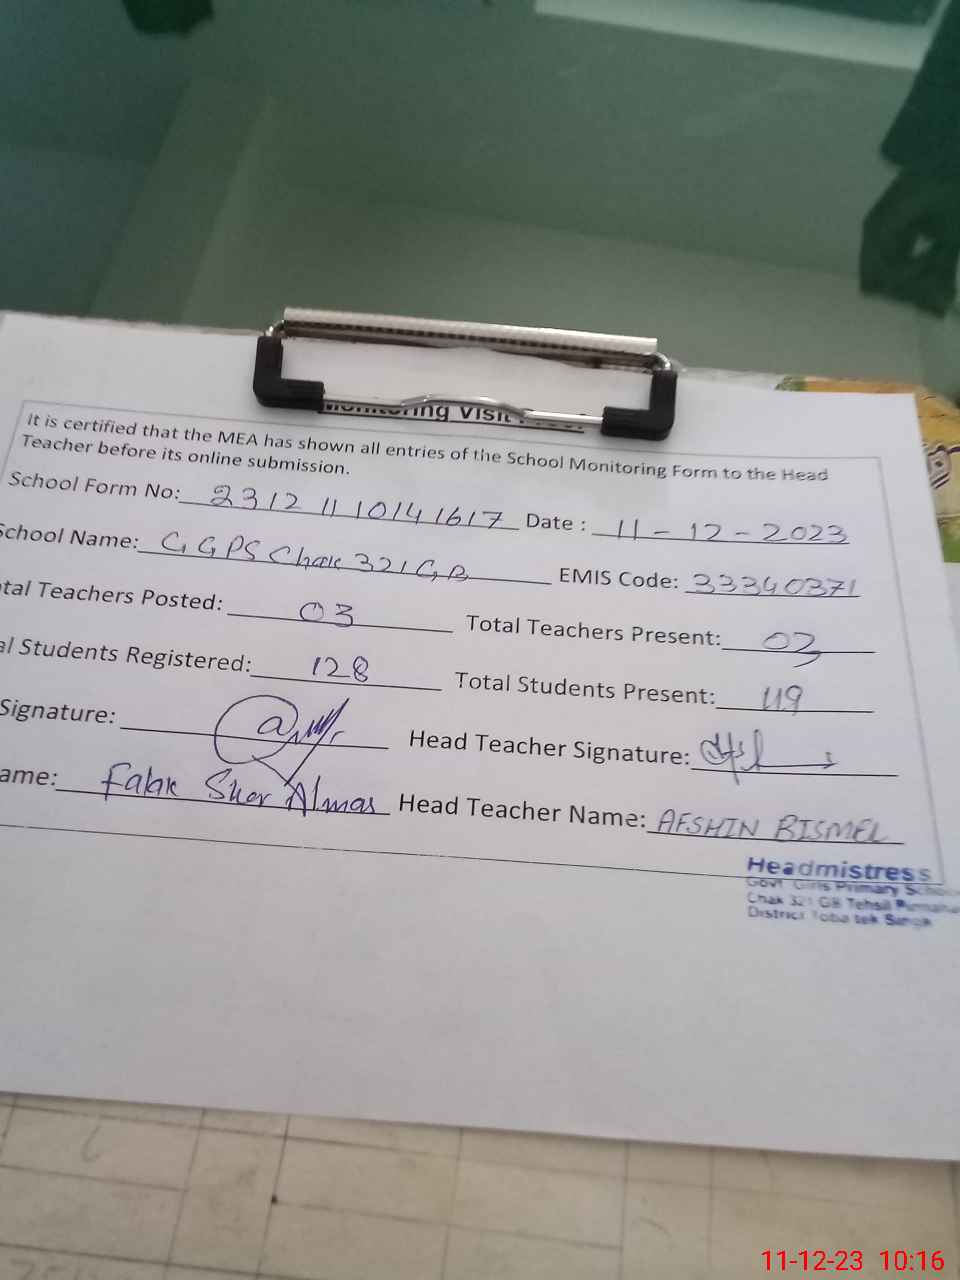 Monitoring Visit
It is certified that the MEA has shown all entries of the School Monitoring Form to the Head
Teacher before its online submission.
School Form No: 2312 11 10141617 Date : 11-12-2023
School Name: GGPS Chak 321GB EMIS Code: 33340371
tal Teachers Posted: 03 Total Teachers Present: 03
al Students Registered: 128 Total Students Present: 119
Signature: Head Teacher Signature:
ame: Falak Sher Almas Head Teacher Name: AFSHIN BISMEL
Headmistress
Govt. Girls Primary School
Chak 321 GB Tehsil
District Toba tek Singh
11-12-23 10:16